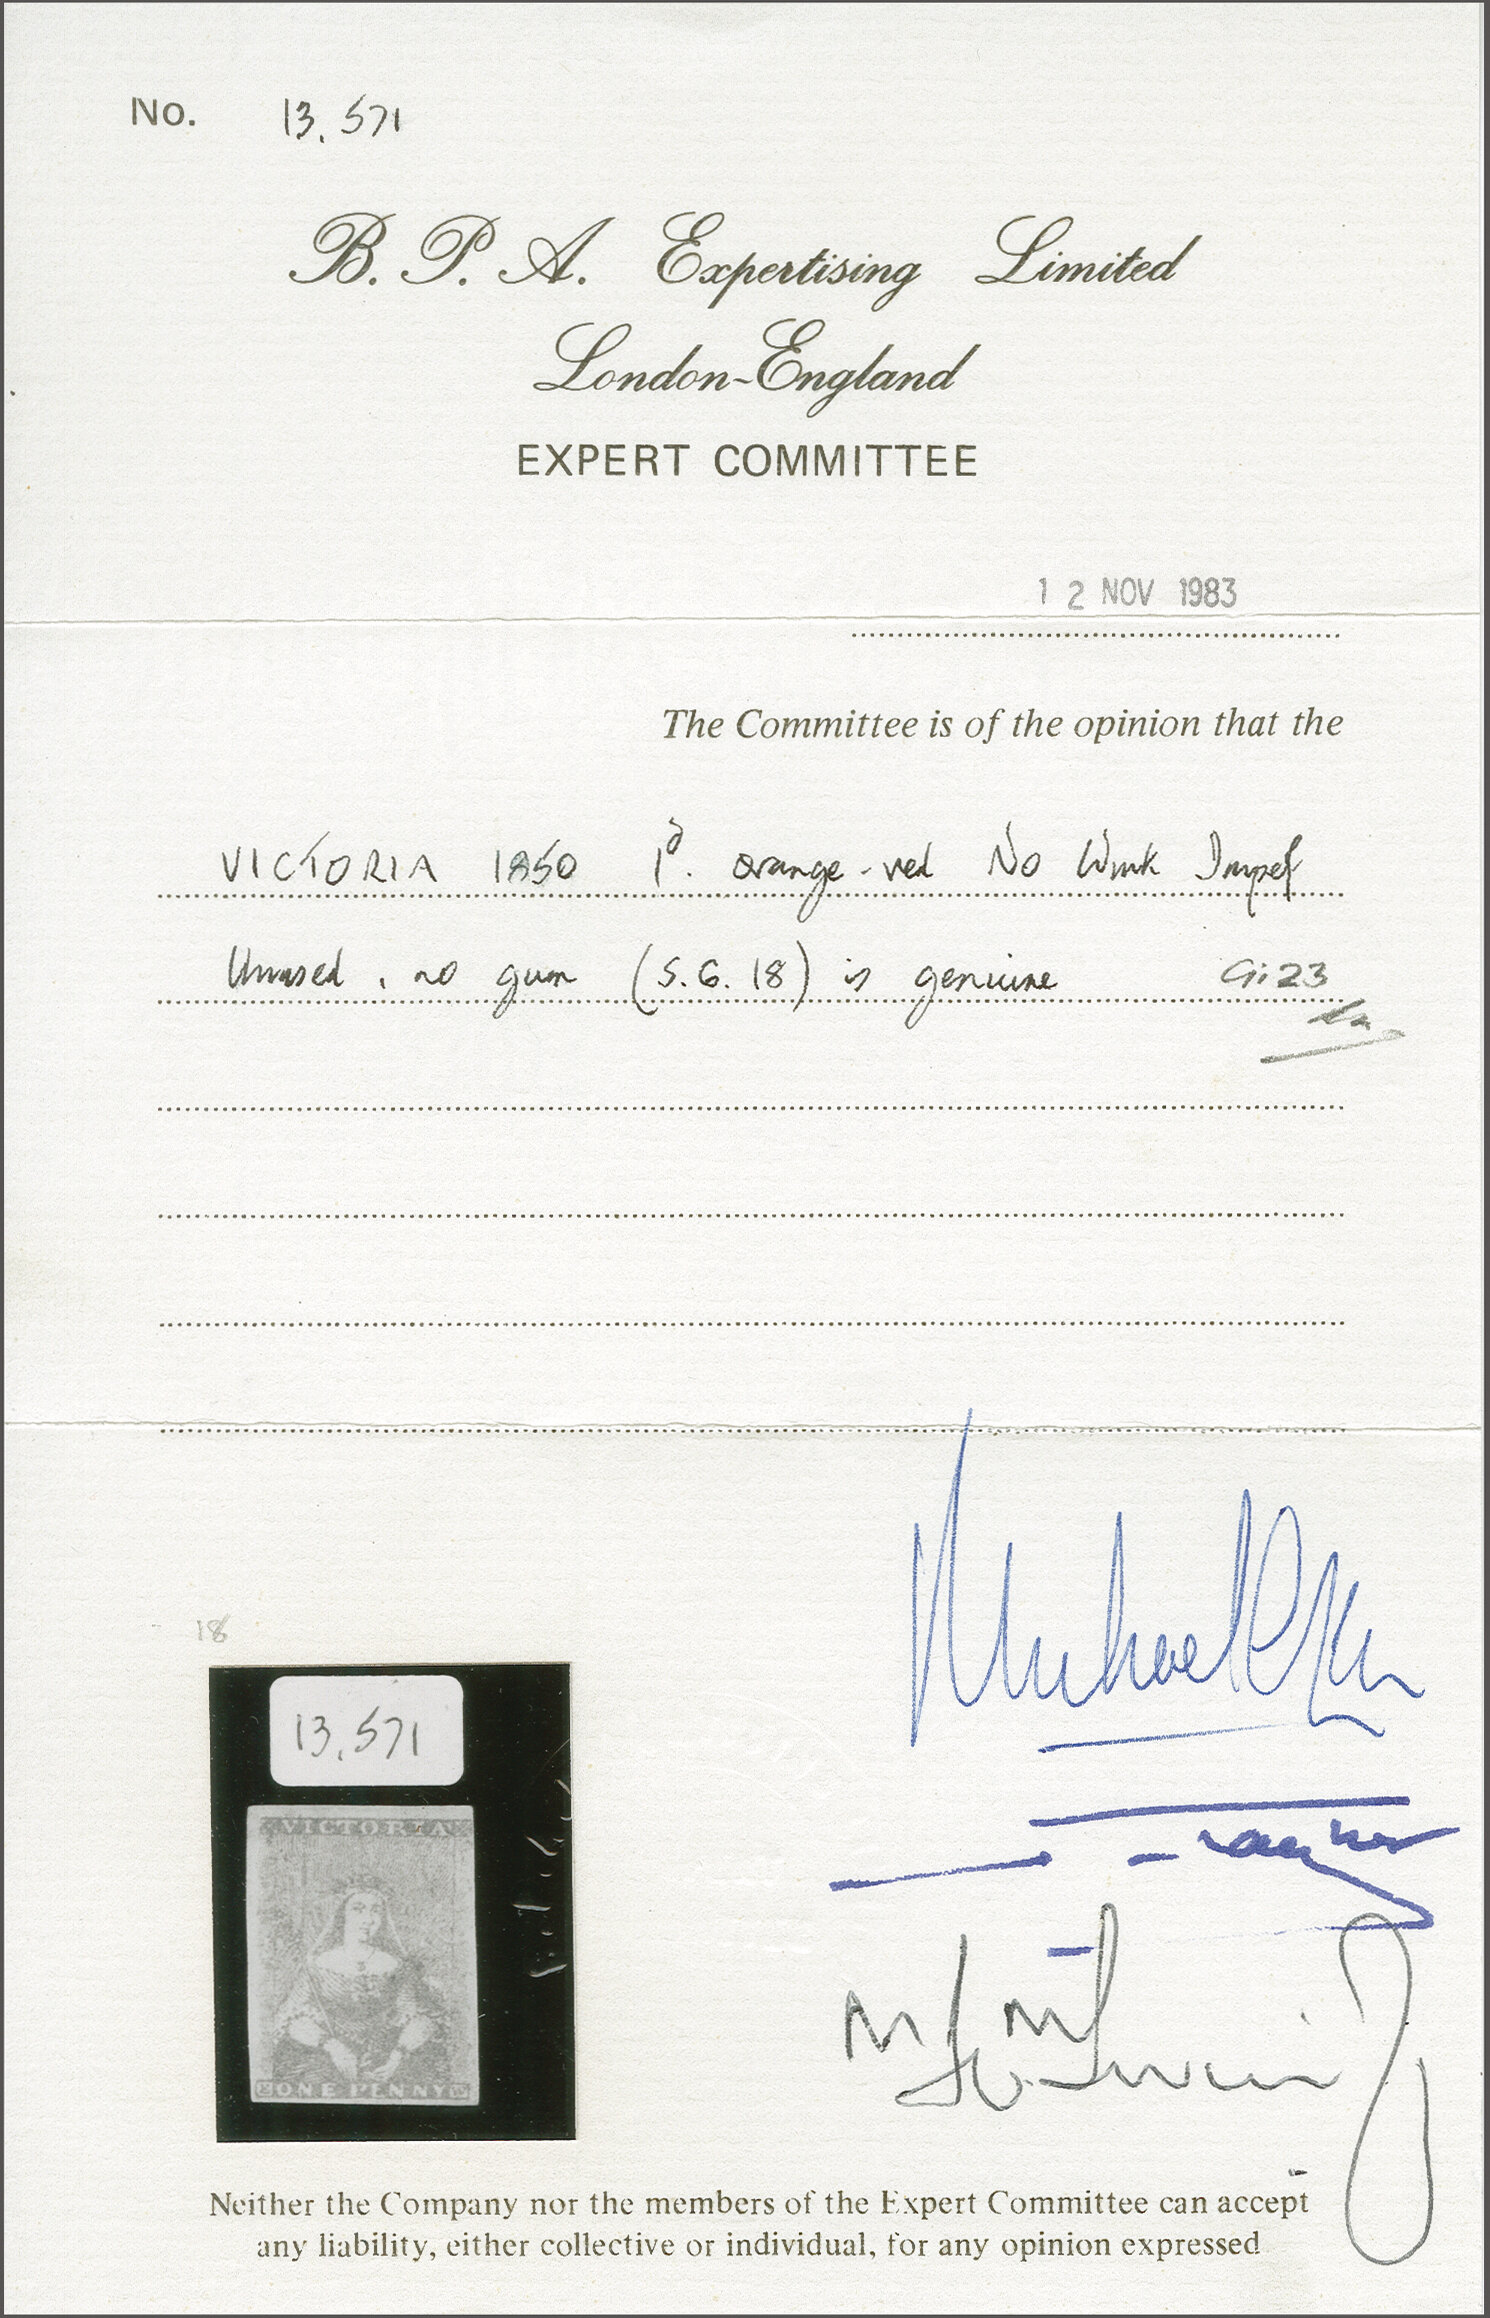 No. 13,571
B. P. A. Expertising Limited
London-England
EXPERT COMMITTEE
12 NOV 1983
The Committee is of the opinion that the
VICTORIA 1850 1d. orange-red No Wmk Imperf
Unused, no gum (S.G. 18) is genuine Gi 23
18
13,571
VICTORIA
ONE PENNY
Neither the Company nor the members of the Expert Committee can accept
any liability, either collective or individual, for any opinion expressed